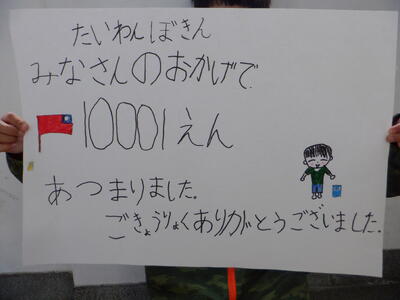 たいわんぼきん
みなさんのおかげで
10001えん
あつまりました。
ごきょうりょくありがとうございました。